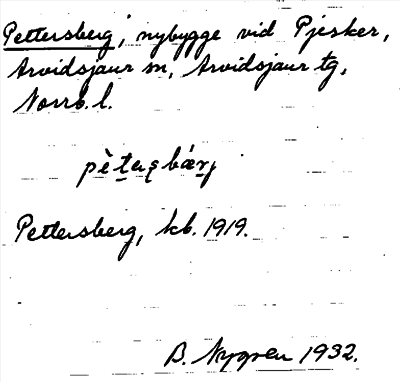 Pettersberg, nybygge vid Pjesker,
Arvidsjaur sn, Arvidsjaur tg,
Norrb. l.
Pettersberg, kb. 1919.
B. Nygren 1932.